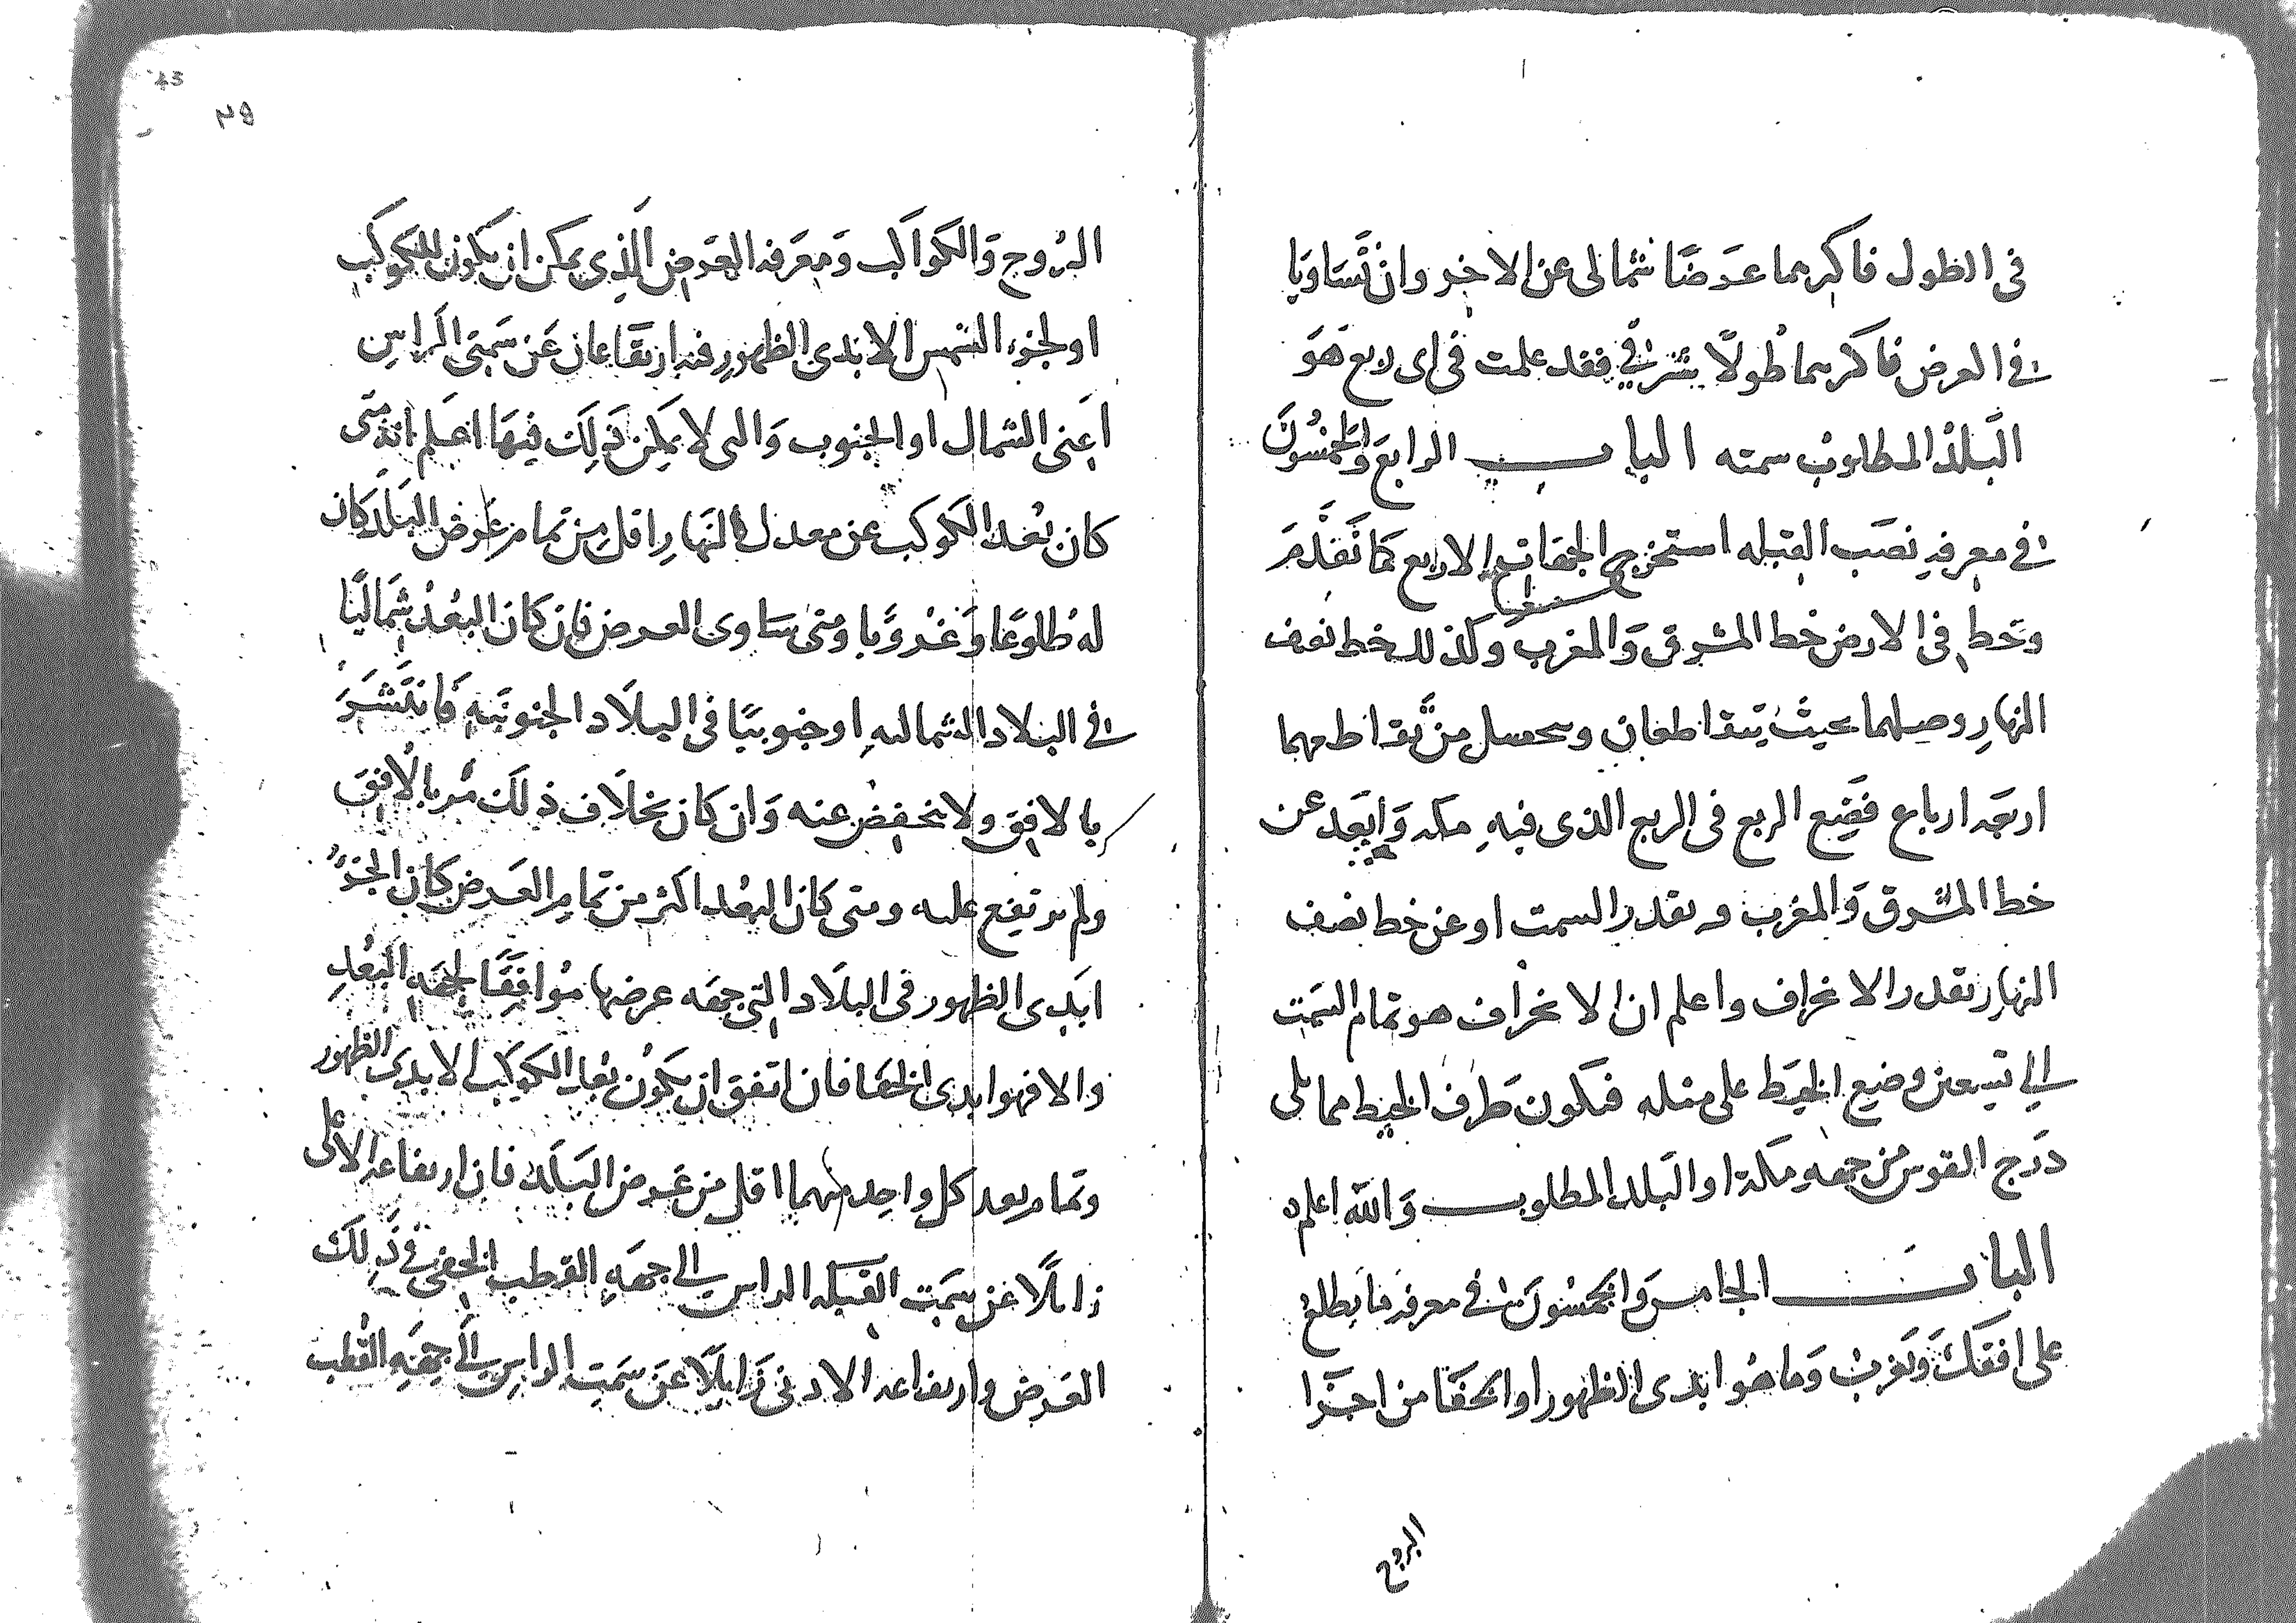 في الطول فاكثرهما عرضًا شمالي عن الاخر وان تساويا
في العرض فاكثرهما طولًا شرقي فقد علمت في اي ربع هو
البلد المطلوب سمته الباب الرابع والخمسون
في معرفة نصب القبله استخرج الجهات الاربع كما تقدم
وتخط في الارض خط المشرق والمغرب وكذلك خط نصف
النهار وصلهما بحيث يتقاطعان ويحصل من تقاطعهما
اربعة ارباع فضع الربع في الربع الذي فيه مكه وابعد عن
خط المشرق والمغرب بقدر السمت او عن خط نصف
النهار بقدر الانحراف واعلم ان الانحراف هو تمام السمت
الي تسعين وضع الخيط على مثله فيكون طرف الخيط مما يلى
درج القوس من جهة مكة او البلد المطلوب والله اعلم
الباب الخامس والخمسون في معرفة ما يطلع
على افقك ويغرب وما هو ابدى الظهور او الخفا من اجزا
البروج
43
البروج والكواكب ومعرفه العرض الذي يمكن ان يكون للكوكب
او لجزء الشمس الابدى الظهور فيه ارتفاعان عن سمتي الراس
اعنى الشمال او الجنوب والتى لا يمكن ذلك فيها اعلم انه متى
كان بعد الكوكب عن معدل النهار اقل من تمام عرض البلد كان
له طلوعًا وغروبا ومتى ساوى العرض فان كان البعد شماليًا
في البلاد الشماليه او جنوبيًا في البلاد الجنوبيه
بالافق ولا ينخفض عنه وان كان بخلاف ذلك مر بالافق
ولم يرتفع عليه ومتى كان البعد اكثر من تمام العرض كان الجزء
ابدى الظهور في البلاد التى جهه عرضها موافقًا لجهه البعد
والا فهو ابدى الخفا فان اتفق ان يكون بعد الكوكب الابدى الظهور
وتمام بعد كل واحد منهما اقل من عرض البلد فان ارتفاعه الاعلى
زايلًا عن سمت القبله الراس الي جهه القطب الخفى في ذلك
العرض وارتفاعه الادنى زايلًا عن سمت الراس الي جهه القطب